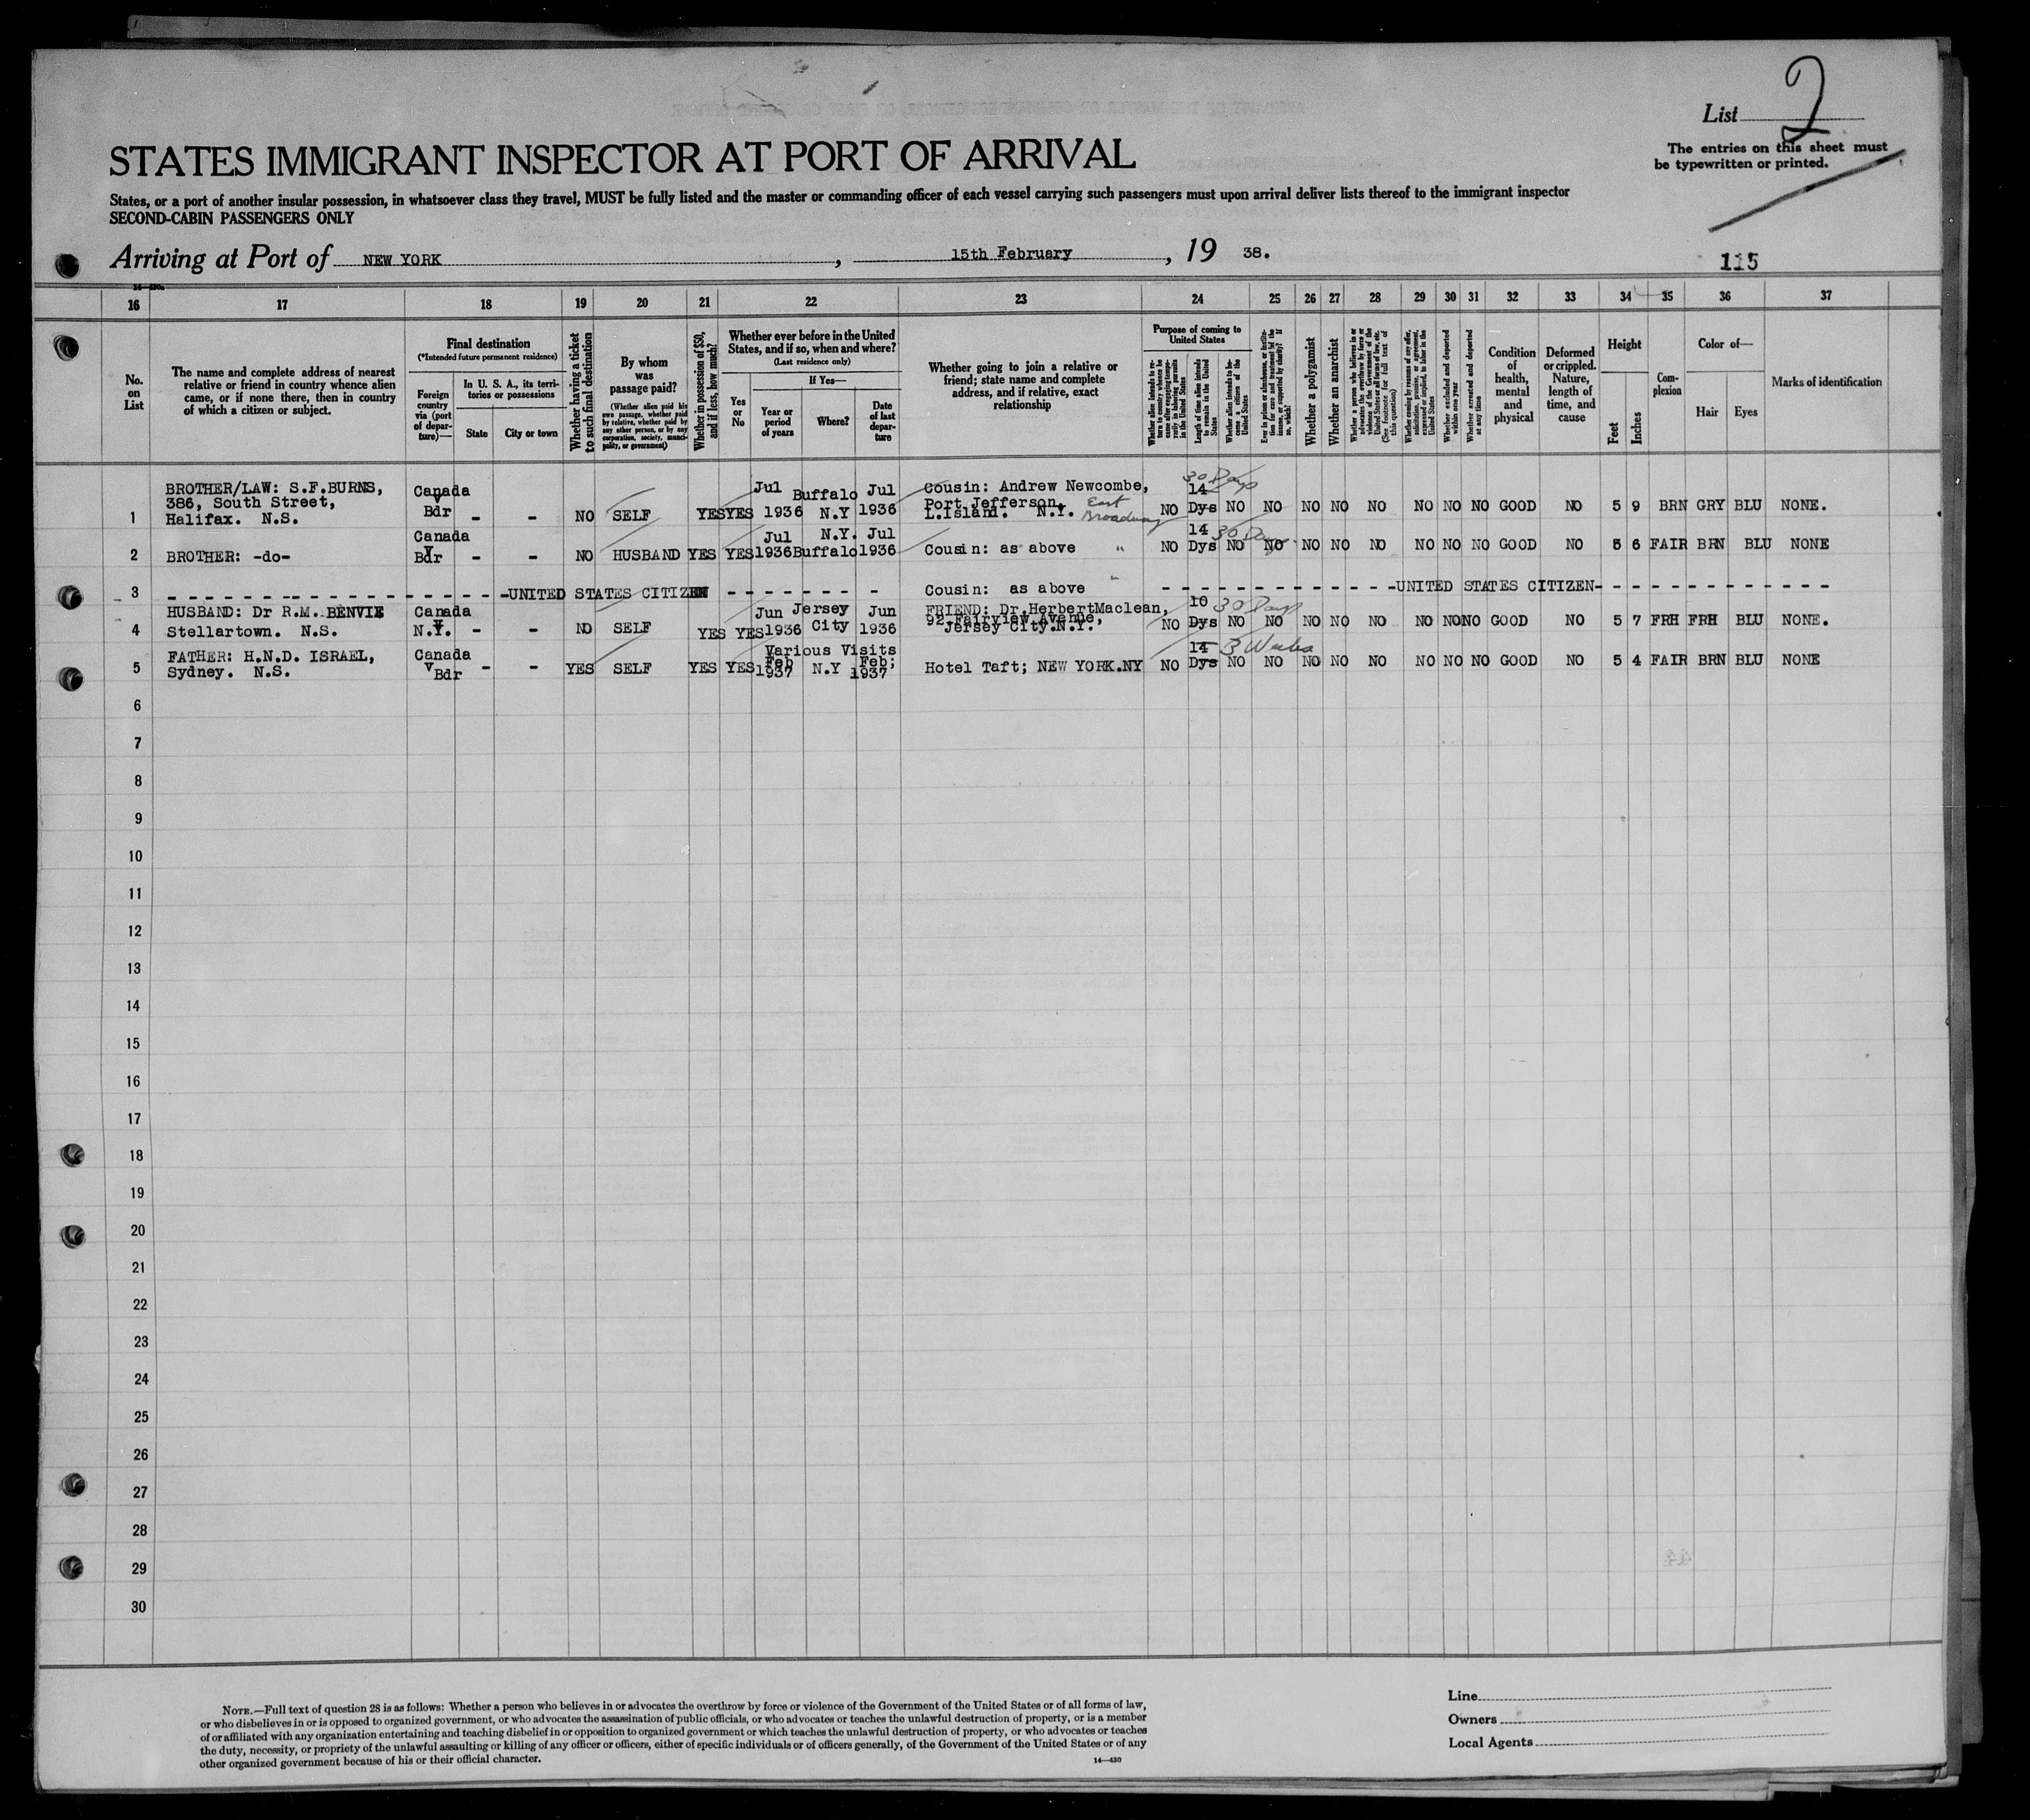 List 2
The entries on this sheet must
be typewritten or printed.
STATES IMMIGRANT INSPECTOR AT PORT OF ARRIVAL
States, or a port of another insular possession, in whatsoever class they travel, MUST be fully listed and the master or commanding officer of each vessel carrying such passengers must upon arrival deliver lists thereof to the immigrant inspector
SECOND-CABIN PASSENGERS ONLY
Arriving at Port of NEW YORK, 15th February, 19 38.
115
16 17 18 19 20 21 22 23 24 25 26 27 28 29 30 31 32 33 34 35 36 37
No.
on
List
The name and complete address of nearest
relative or friend in country whence alien
came, or if none there, then in country
of which a citizen or subject.
Final destination
(*Intended future permanent residence)
Foreign
country
via (port
of depar-
ture)—
In U. S. A., its terri-
tories or possessions
State
City or town
Whether having a ticket
to such final destination
By whom
was
passage paid?
(Whether alien paid his
own passage, whether paid
by relative, whether paid by
any other person, or by any
corporation, society, munici-
pality, or government)
Whether in possession of $50,
and if less, how much?
Whether ever before in the United
States, and if so, when and where?
(Last residence only)
Yes
or
No
If Yes—
Year or
period
of years
Where?
Date
of last
depar-
ture
Whether going to join a relative or
friend; state name and complete
address, and if relative, exact
relationship
Purpose of coming to
United States
Whether alien intends to re-
turn to country whence he
came after engaging tempo-
rarily in laboring pursuits
in the United States
Length of time alien intends
to remain in the United
States
Whether alien intends to be-
come a citizen of the
United States
Whether a polygamist
Whether an anarchist
Whether excluded and deported
within one year
Whether arrested and deported
at any time
Condition
of
health,
mental
and
physical
Deformed
or crippled.
Nature,
length of
time, and
cause
Height
Feet
Inches
Com-
plexion
Color of—
Hair
Eyes
Marks of identification
1 BROTHER/LAW: S.F.BURNS,
386, South Street,
Halifax. N.S.
Canada
v
Bdr - - NO SELF YES YES Jul
1936 Buffalo
N.Y Jul
1936 Cousin: Andrew Newcombe,
Port Jefferson,
L.Island. N.Y. East
Broadway NO 14
Dys 30 Days NO NO NO NO NO NO NO NO GOOD NO 5 9 BRN GRY BLU NONE.
2 BROTHER: -do- Canada
v
Bdr - - NO HUSBAND YES YES Jul
1936 N.Y.
Buffalo Jul
1936 Cousin: as above " NO 14
Dys 30 Days NO NO NO NO NO NO NO NO GOOD NO 5 6 FAIR BRN BLU NONE
3 - - - UNITED STATES CITIZEN - - - Cousin: as above " - - - UNITED STATES CITIZEN - - -
4 HUSBAND: Dr R.M. BENVIE
Stellartown. N.S. Canada
v
N.Y. - - NO SELF YES YES Jun
1936 Jersey
City Jun
1936 FRIEND: Dr.HerbertMaclean,
92, Fairview Avenue,
Jersey City.N.Y. NO 10
Dys 30 Days NO NO NO NO NO NO NO NO GOOD NO 5 7 FRH FRH BLU NONE.
5 FATHER: H.N.D. ISRAEL,
Sydney. N.S. Canada
v
Bdr - - YES SELF YES YES Various Visits
Feb
1937 N.Y Feb;
1937 Hotel Taft; NEW YORK.NY NO 14
Dys 3 Weeks NO NO NO NO NO NO NO NO GOOD NO 5 4 FAIR BRN BLU NONE
6
7
8
9
10
11
12
13
14
15
16
17
18
19
20
21
22
23
24
25
26
27
28
29
30
NOTE.—Full text of question 28 is as follows: Whether a person who believes in or advocates the overthrow by force or violence of the Government of the United States or of all forms of law,
or who disbelieves in or is opposed to organized government, or who advocates the assassination of public officials, or who advocates or teaches the unlawful destruction of property, or is a member
of or affiliated with any organization entertaining and teaching disbelief in or opposition to organized government or which teaches the unlawful destruction of property, or who advocates or teaches
the duty, necessity, or propriety of the unlawful assaulting or killing of any officer or officers, either of specific individuals or of officers generally, of the Government of the United States or of any
other organized government because of his or their official character.
14—430
Line
Owners
Local Agents